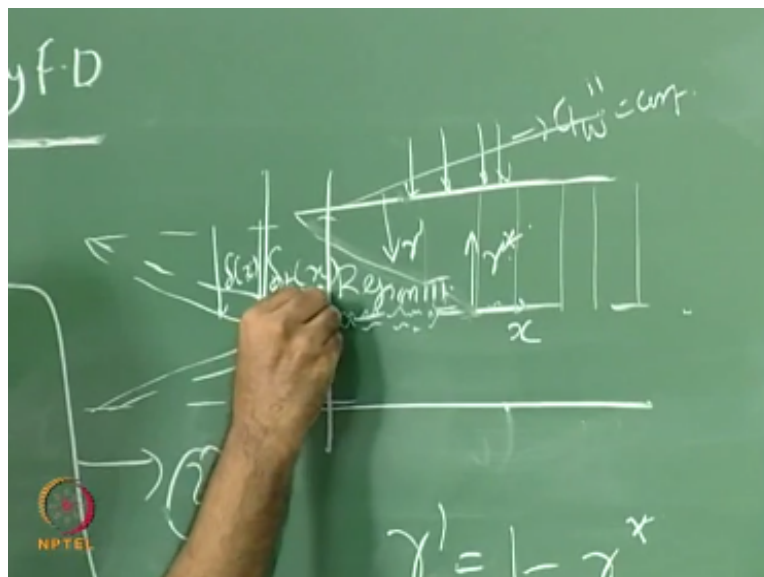 y F.D
→ q_w'' = const.
δ(x) δ_t(x) Region III
r
r*
x
r' = 1 - r*
NPTEL